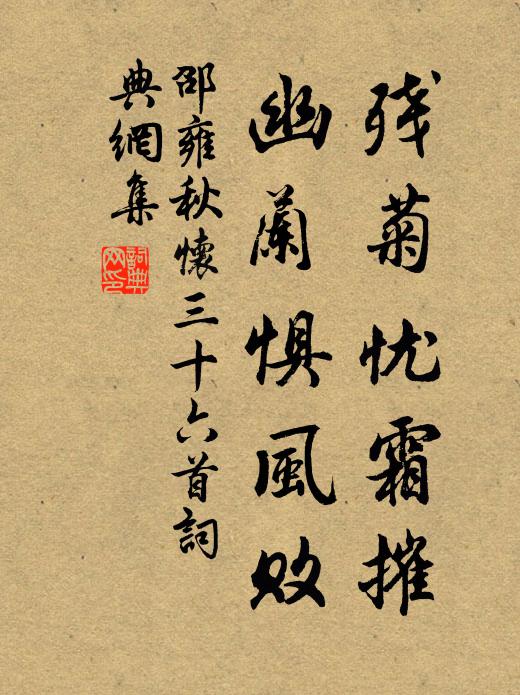 残菊忧霜摧
幽蘭惧風败
邵雍秋懷三十六首詞
典網集
詞典網印